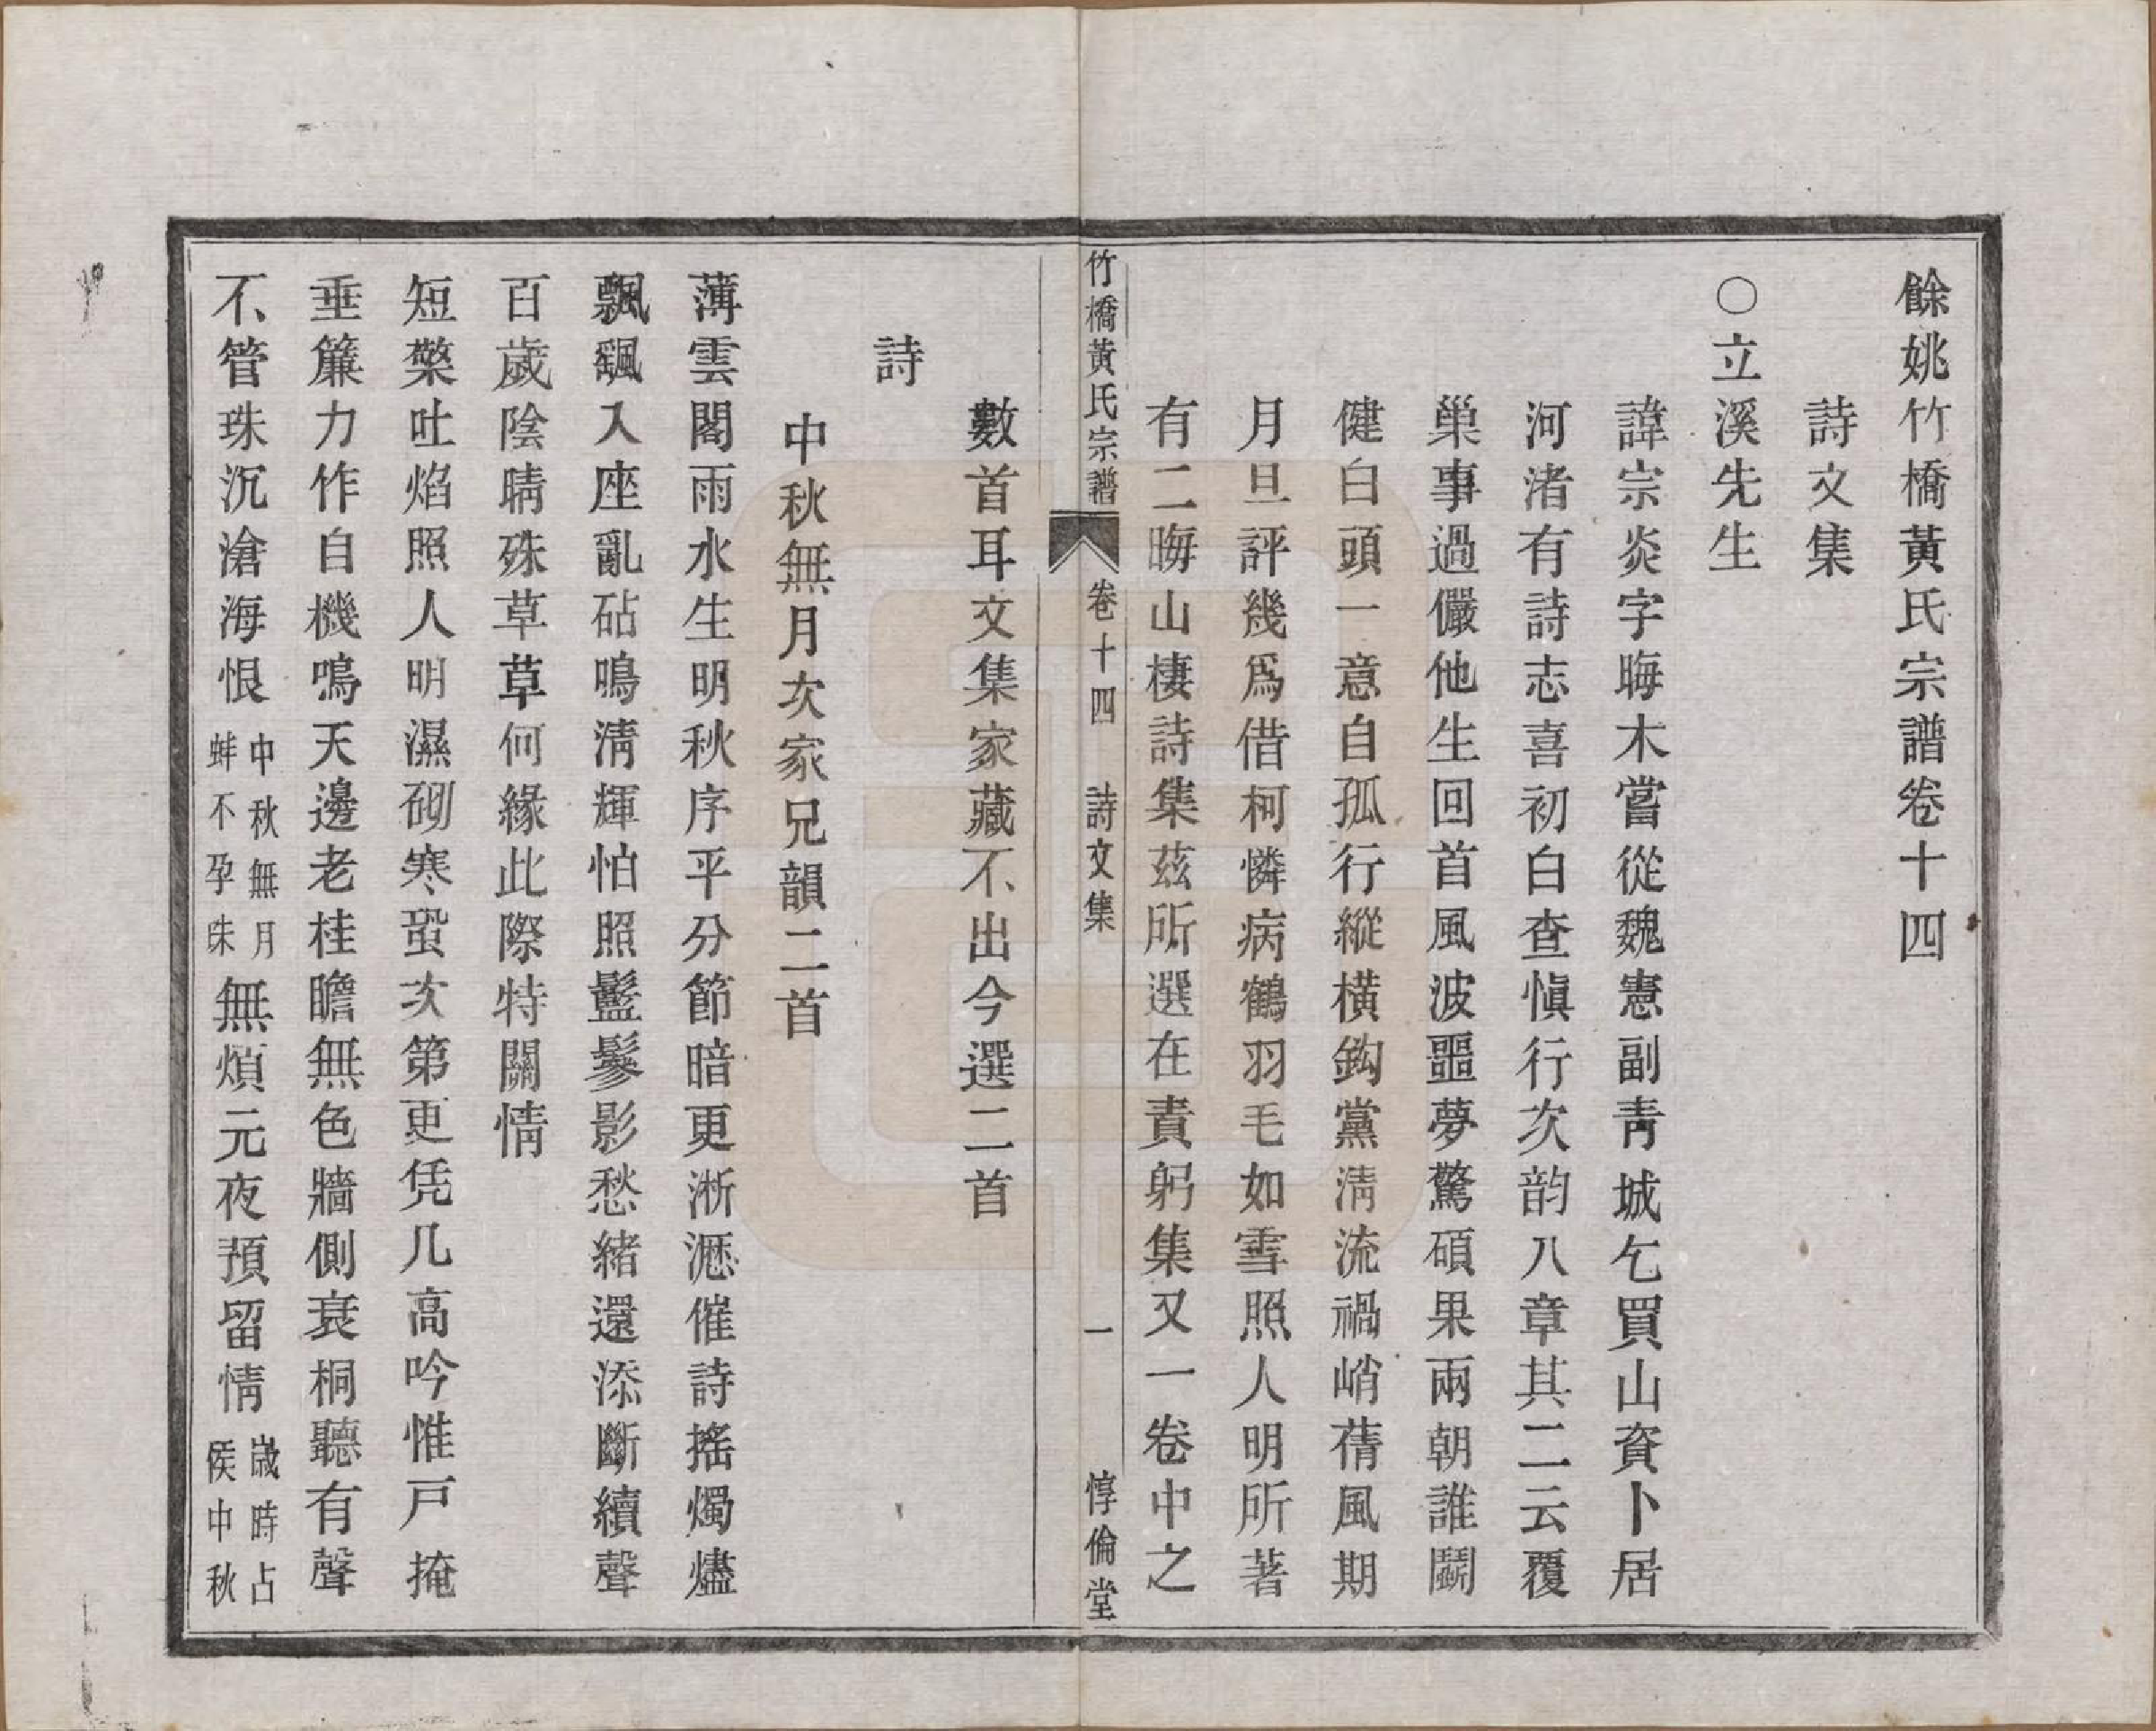 餘姚竹橋黃氏宗譜卷十四
詩文集
○立溪先生
諱宗炎字晦木嘗從魏憲副靑城乞買山資卜居
河渚有詩志喜初白查愼行次韵八章其二云覆
巢事過儼他生回首風波噩夢驚碩果兩朝誰鬭
健白頭一意自孤行縱橫鈎黨淸流禍峭蒨風期
月旦評幾爲借柯憐病鶴羽毛如雪照人明所著
有二晦山棲詩集茲所選在責躬集又一卷中之
竹橋黃氏宗譜
卷十四
詩文集
一
惇倫堂
數首耳文集家藏不出今選二首
詩
中秋無月次家兄韻二首
薄雲閣雨水生明秋序平分節暗更淅瀝催詩搖燭燼
飄颻入座亂砧鳴淸輝怕照鬖鬖影愁緒還添斷續聲
百歲陰晴殊草草何緣此際特關情
短檠吐焰照人明濕砌寒蛩次第更凭几高吟惟戸掩
垂簾力作自機鳴天邊老桂瞻無色牆側衰桐聽有聲
不管珠沉滄海恨中秋無月蚌不孕珠無煩元夜預留情歲時占候中秋